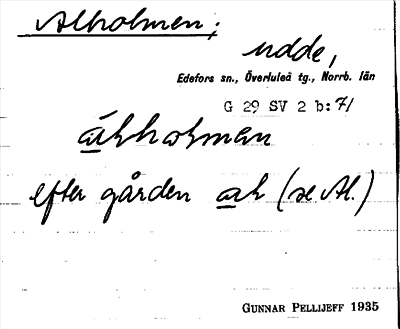 Alholmen;
udde,
Edefors sn., Överluleå tg., Norrb. län
G 29 SV 2 b: 7/
efter gården (se Al.)
GUNNAR PELLIJEFF 1935